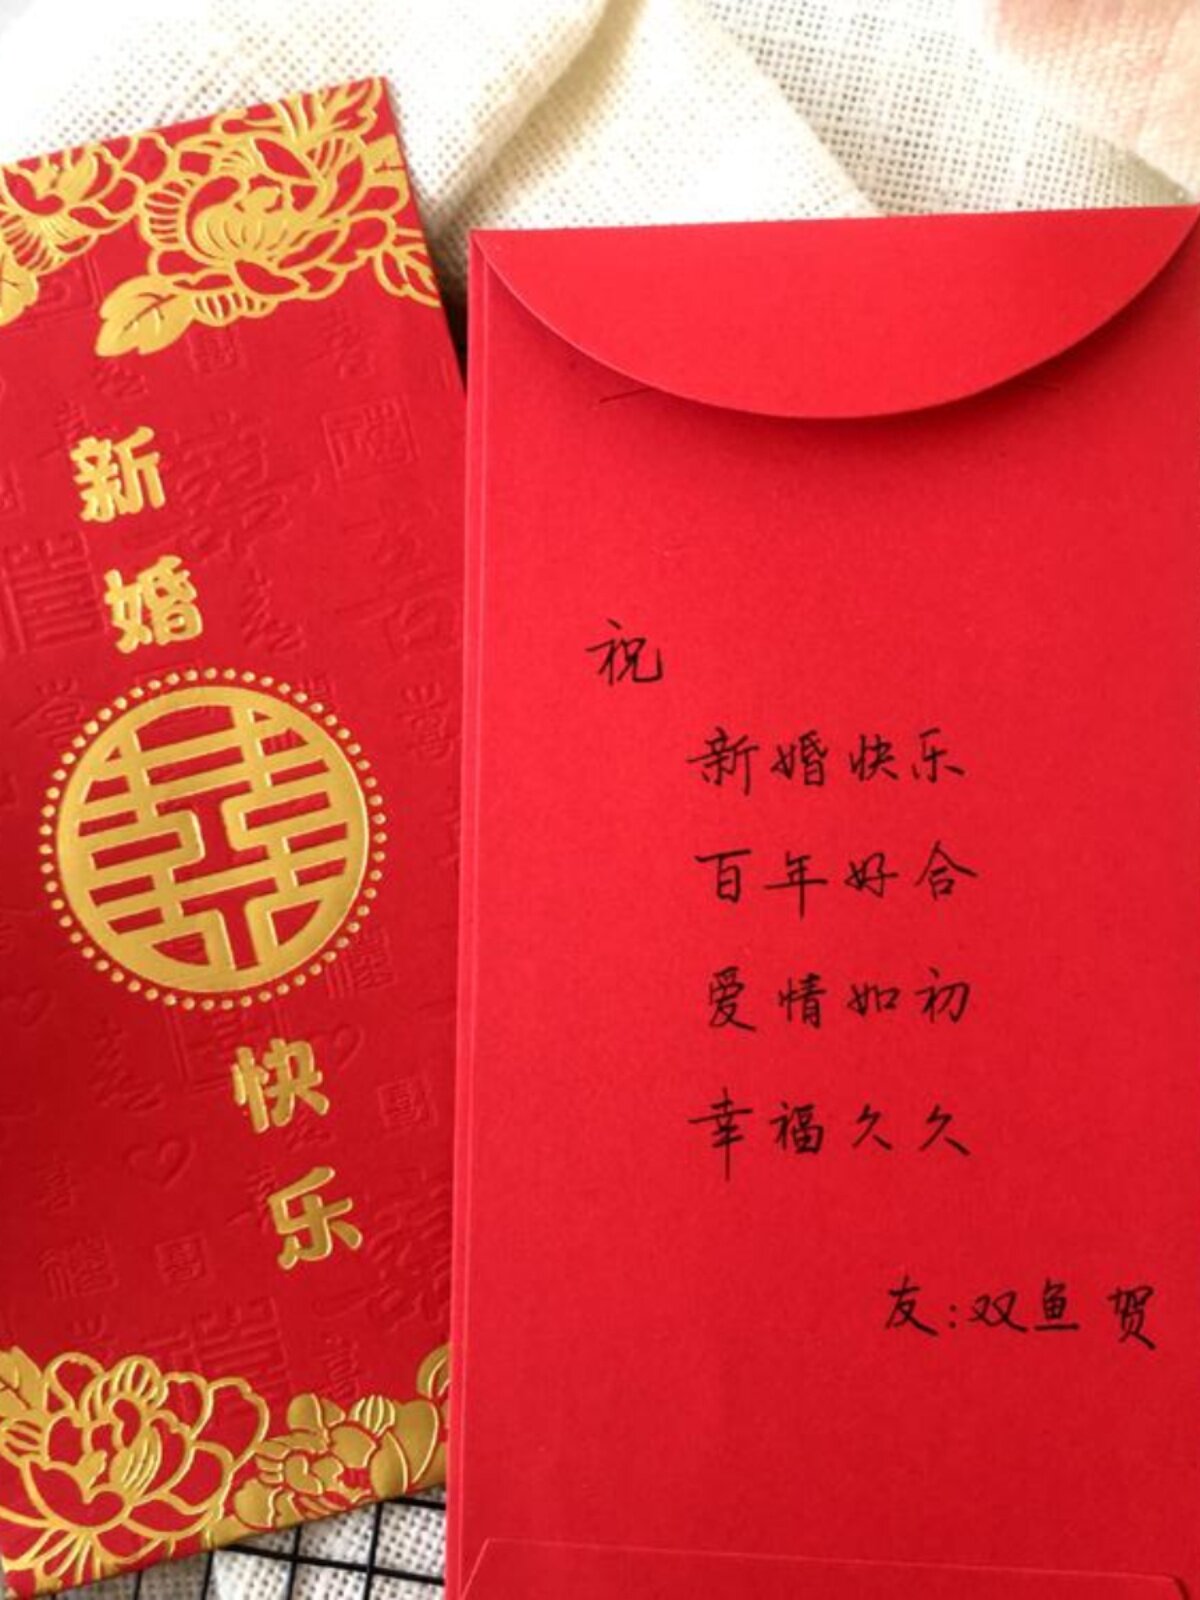 新婚
囍
快乐
祝
新婚快乐
百年好合
爱情如初
幸福久久
友:双鱼 贺